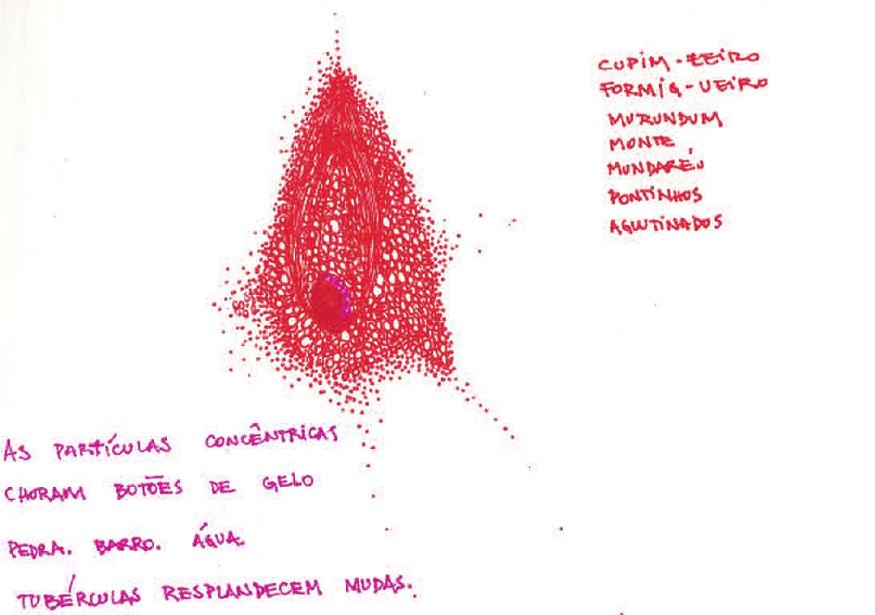 CUPIM-ZEIRO
FORMIG-UEIRO
MURUNDUM
MONTE
MUNDARÉU
PONTINHOS
AGLUTINADOS
AS PARTÍCULAS CONCÊNTRICAS
CHORAM BOTÕES DE GELO
PEDRA. BARRO. ÁGUA.
TUBÉRCULAS RESPLANDECEM MUDAS.